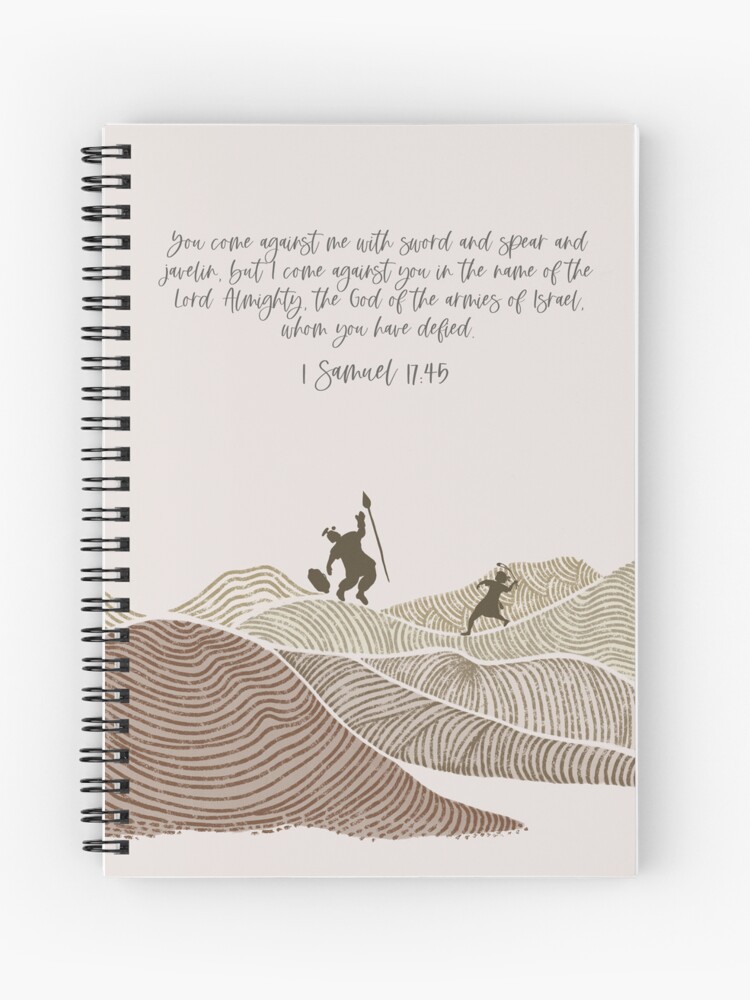 You come against me with sword and spear and
javelin, but I come against you in the name of the
Lord Almighty, the God of the armies of Israel,
whom you have defied.
1 Samuel 17:45